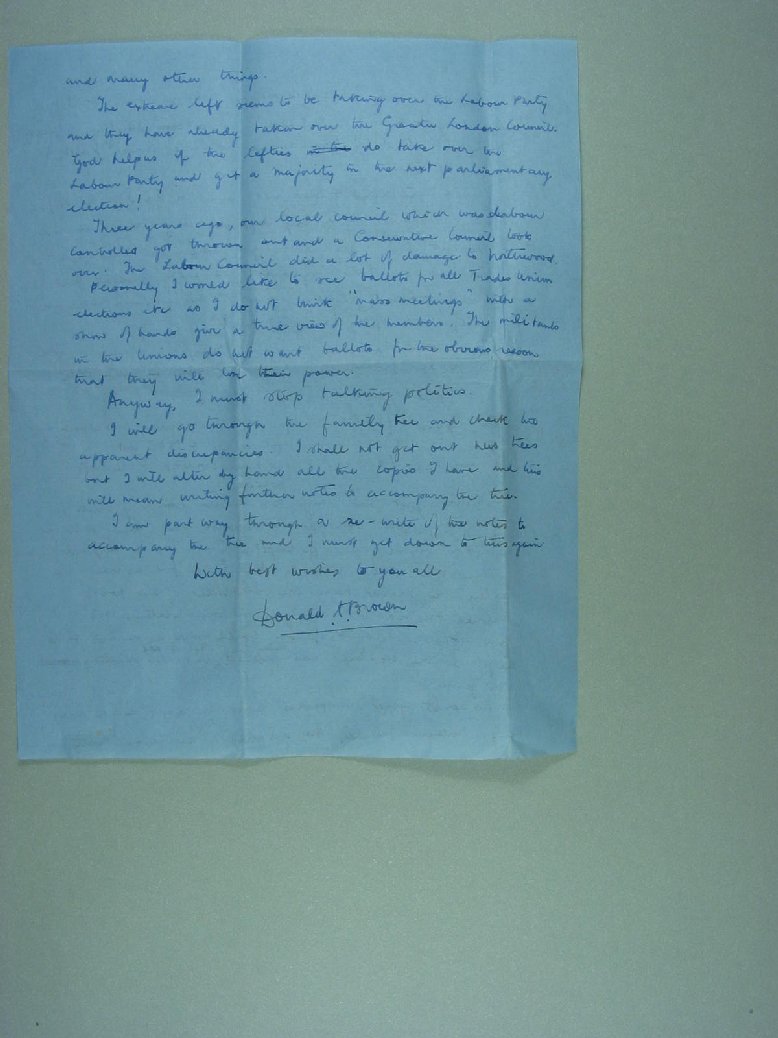 and many other things.
The extreme left seems to be taking over the Labour Party
and they have already taken over the Greater London Council.
God help us if the lefties in the do take over the
Labour Party and get a majority in the next parliamentary
election!
Three years ago, our local council which was Labour
controlled got thrown out and a Conservative Council took
over. The Labour Council did a lot of damage to Northwood.
Personally I would like to see ballots for all Trades Union
elections etc as I do not think "mass meetings" with a
show of hands give a true view of the members. The militants
in the Unions do not want ballots for the obvious reason
that they will lose their power.
Anyway, I must stop talking politics.
I will go through the family tree and check the
apparent discrepancies. I shall not get out new trees
but I will alter by hand all the copies I have and this
will mean writing further notes to accompany the tree.
I am part way through a re-write of the notes to
accompany the tree and I must get down to this again
With best wishes to you all
Donald A. Brown